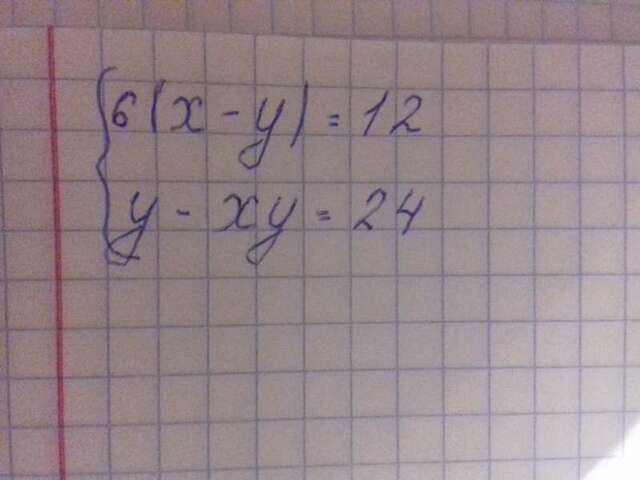 6(x-y)=12
y-xy=24